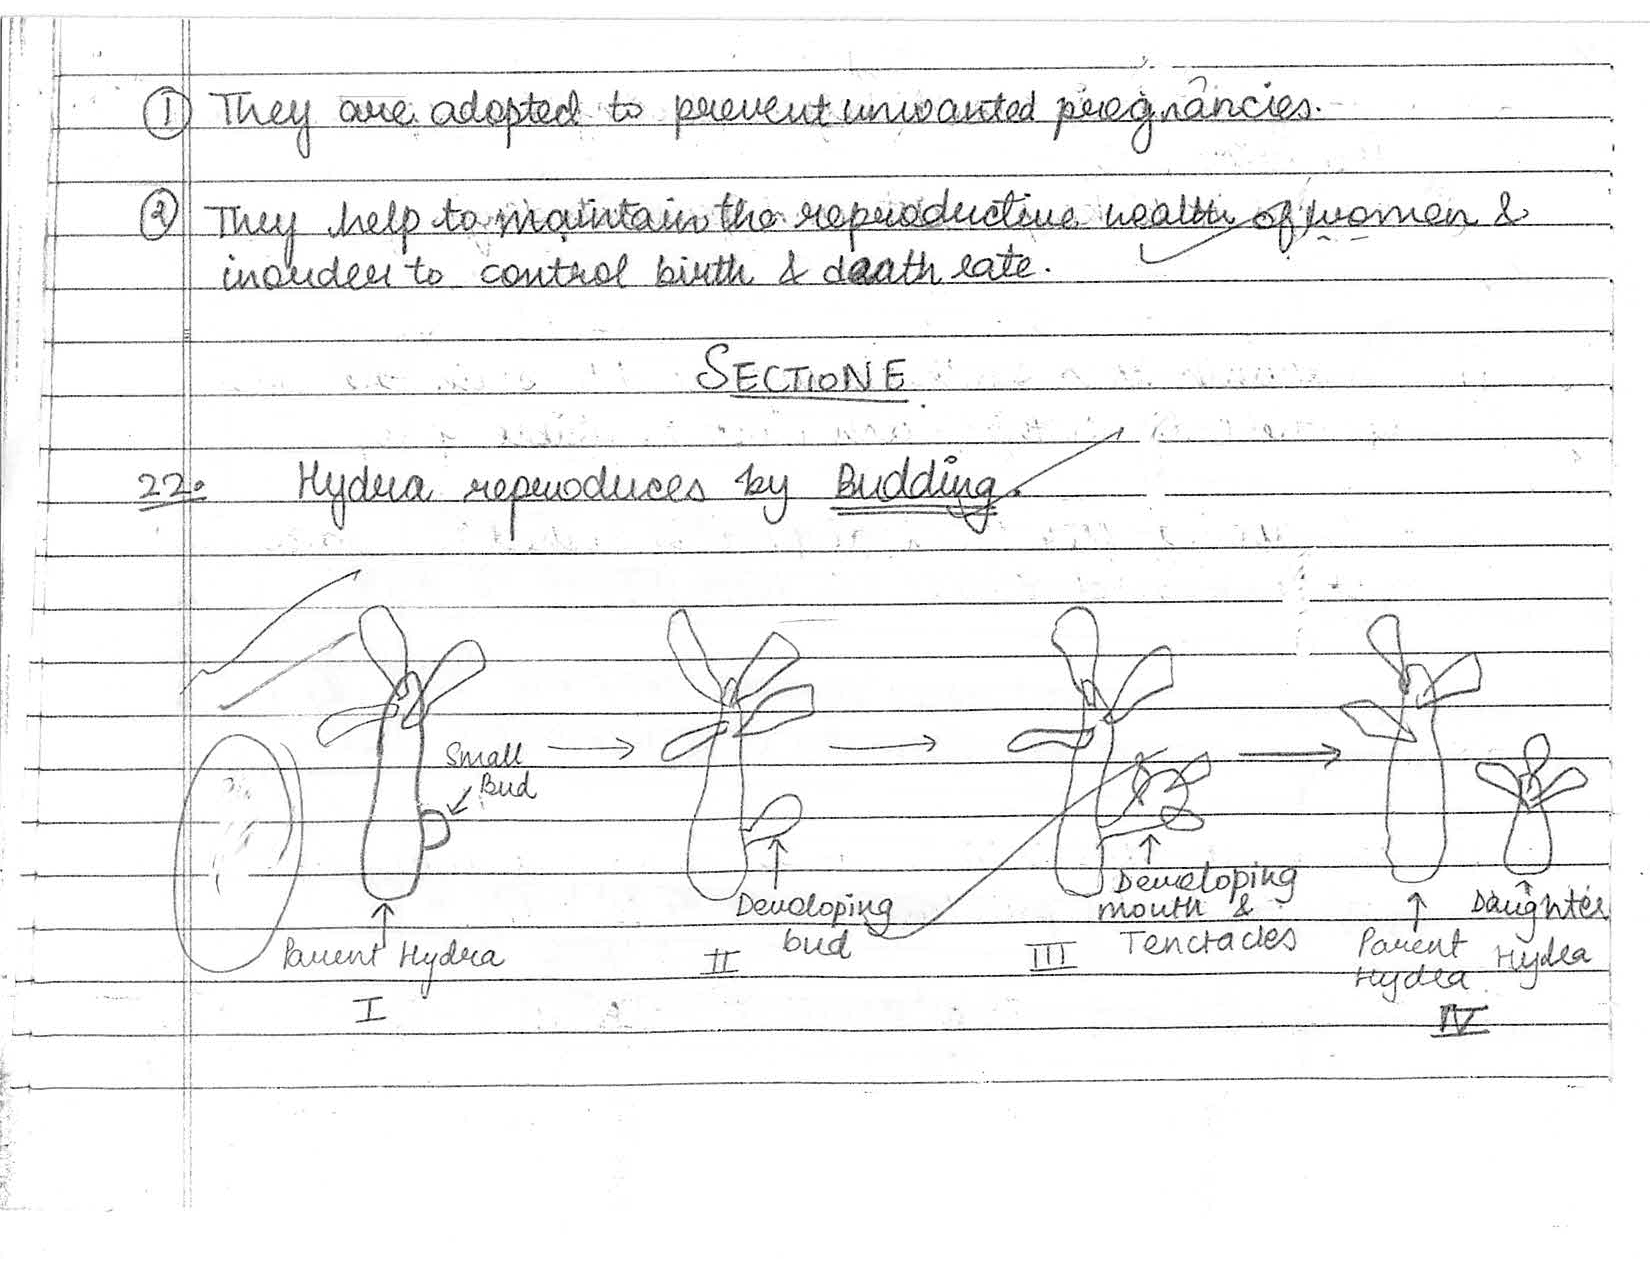 ① They are adopted to prevent unwanted pregnancies.
② They help to maintain the reproductive health of women &
inorder to control birth & death rate.
SECTION E
22. Hydra reproduces by Budding.
Small
Bud
Parent Hydra
I
Developing
bud
II
Developing
mouth &
Tenctacles
III
Parent
Hydra
Daughter
Hydra
IV